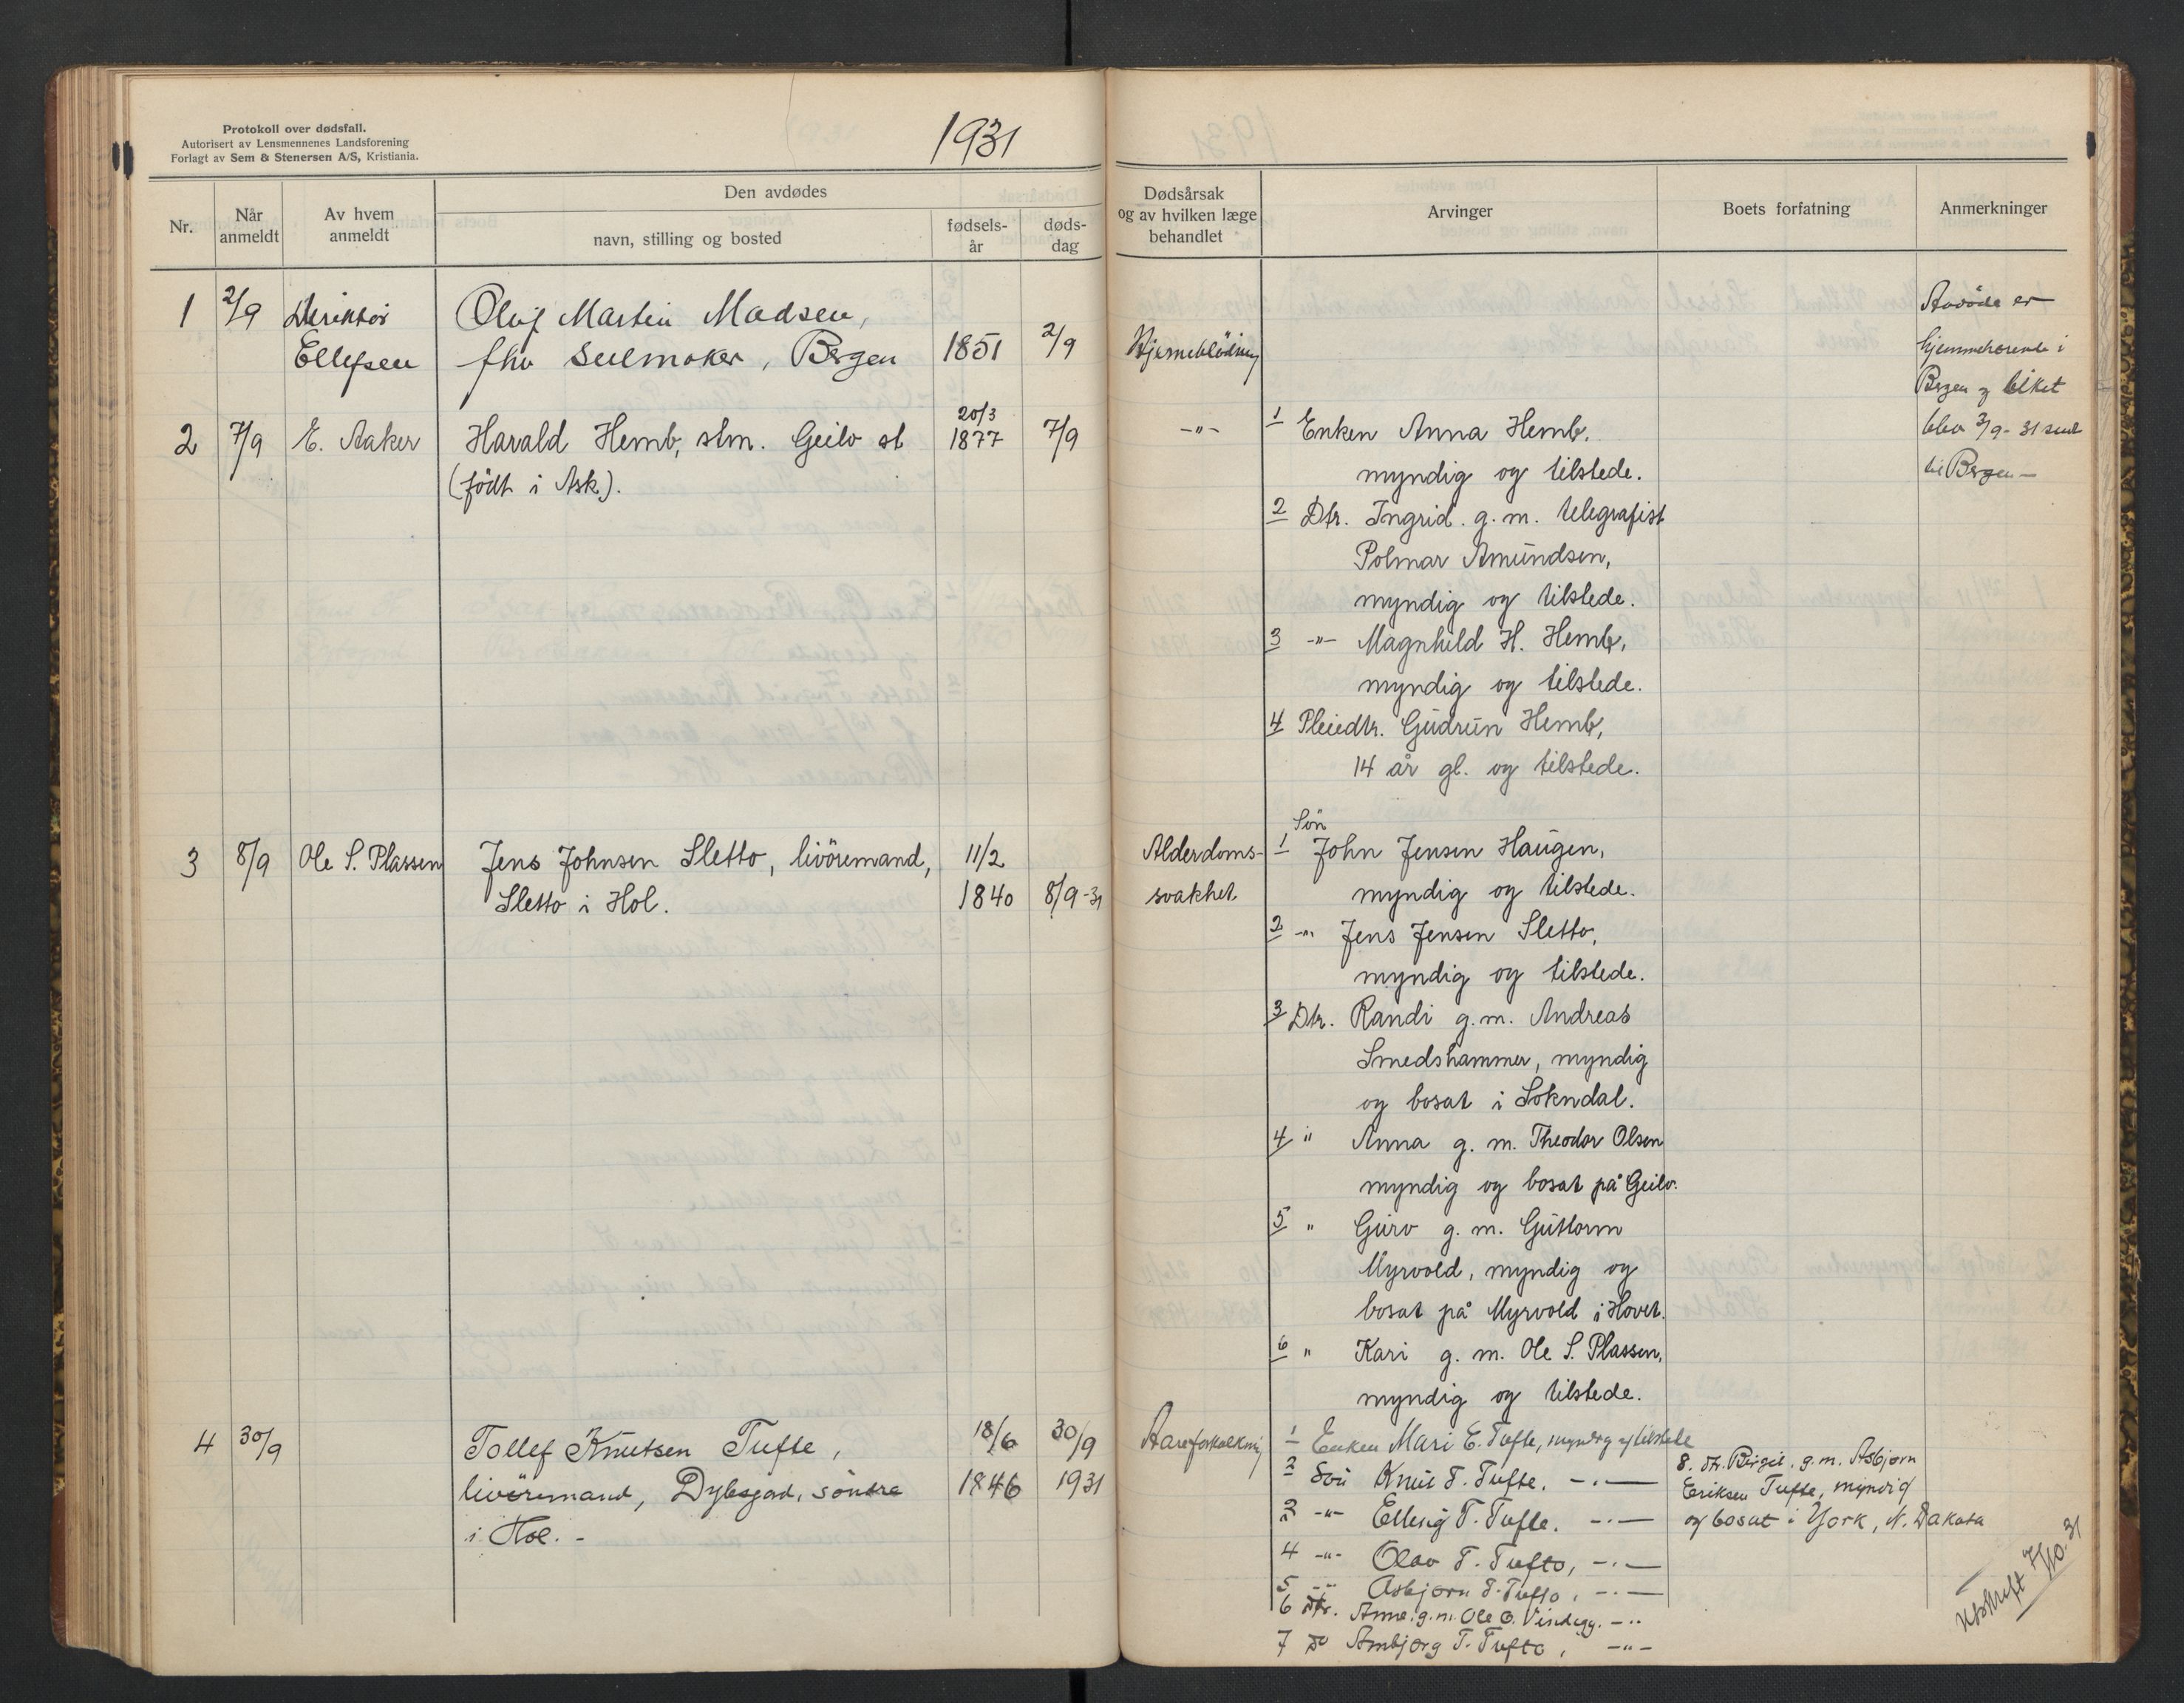 Protokoll over dødsfall.
Autorisert av Lensmennenes Landsforening
Forlagt av Sem & Stenersen A/S, Kristiania.
1931
Nr.
Når anmeldt
Av hvem anmeldt
Den avdødes
navn, stilling og bosted
fødsels-år
døds-dag
Dødsårsak og av hvilken læge behandlet
Arvinger
Boets forfatning
Anmerkninger
1 2/9 Direktör Olaf Martin Madsen,
Ellefsen fhv seilmaker, Bergen 1851 2/9 Hjerneblödning
Avdöde er
hjemmehörende i
Bergen og liket
blev 3/9-31 sendt
til Bergen —
2 7/9 E. Aaker Harald Hemb, stm. Geilo st 20/3 1877 7/9 -"-
(födt i Ask).
1 Enken Anna Hemb.
myndig og tilstede.
2 Dtr. Ingrid. g.m. telegrafist
Polmar Amundsen,
myndig og tilstede.
3 -"- Magnhild H. Hemb,
myndig og tilstede.
4 Pleiedtr. Gudrun Hemb,
14 år gl. og tilstede.
3 8/9 Ole S. Plassen Jens Johnsen Sletto, livöremand, 11/2
Sletto i Hol. 1840 8/9-31
Alderdoms-
svakhet.
Sön
1 John Jensen Haugen,
myndig og tilstede.
2 -"- Jens Jensen Sletto,
myndig og tilstede.
3 Dtr. Randi g.m. Andreas
Smedshammer, myndig
og bosat i Sokndal.
4 " Anna g. m. Theodor Olsen
myndig og bosat på Geilo.
5 " Guro g. m. Guttorm
Myrvold, myndig og
bosat på Myrvold i Hovet.
6 " Kari g. m. Ole S. Plassen,
myndig og tilstede.
4 30/9 Tollef Knutsen Tufte, 18/6 30/9 Aareforkalkning
livöremand, Dybsjord, söndre 1846 1931
i Hol. -
1 Enken Mari E. Tufte, myndig og tilstede
2 Sön Knut T. Tufte. -"-
3 -"- Elling T. Tufte. -"-
4 -"- Olav T. Tufto, -"-
5 -"- Asbjørn T. Tufto, -"-
6 Dtr. Anne. g.m. Ole O. Vindegg. -"-
7 Do Ambjørg T. Tufto, -"-
8. Dtr. Birgit. g.m. Asbjørn
Eriksen Tufte, myndig
og bosat i York, N. Dakota
Utskrift 7/10.31